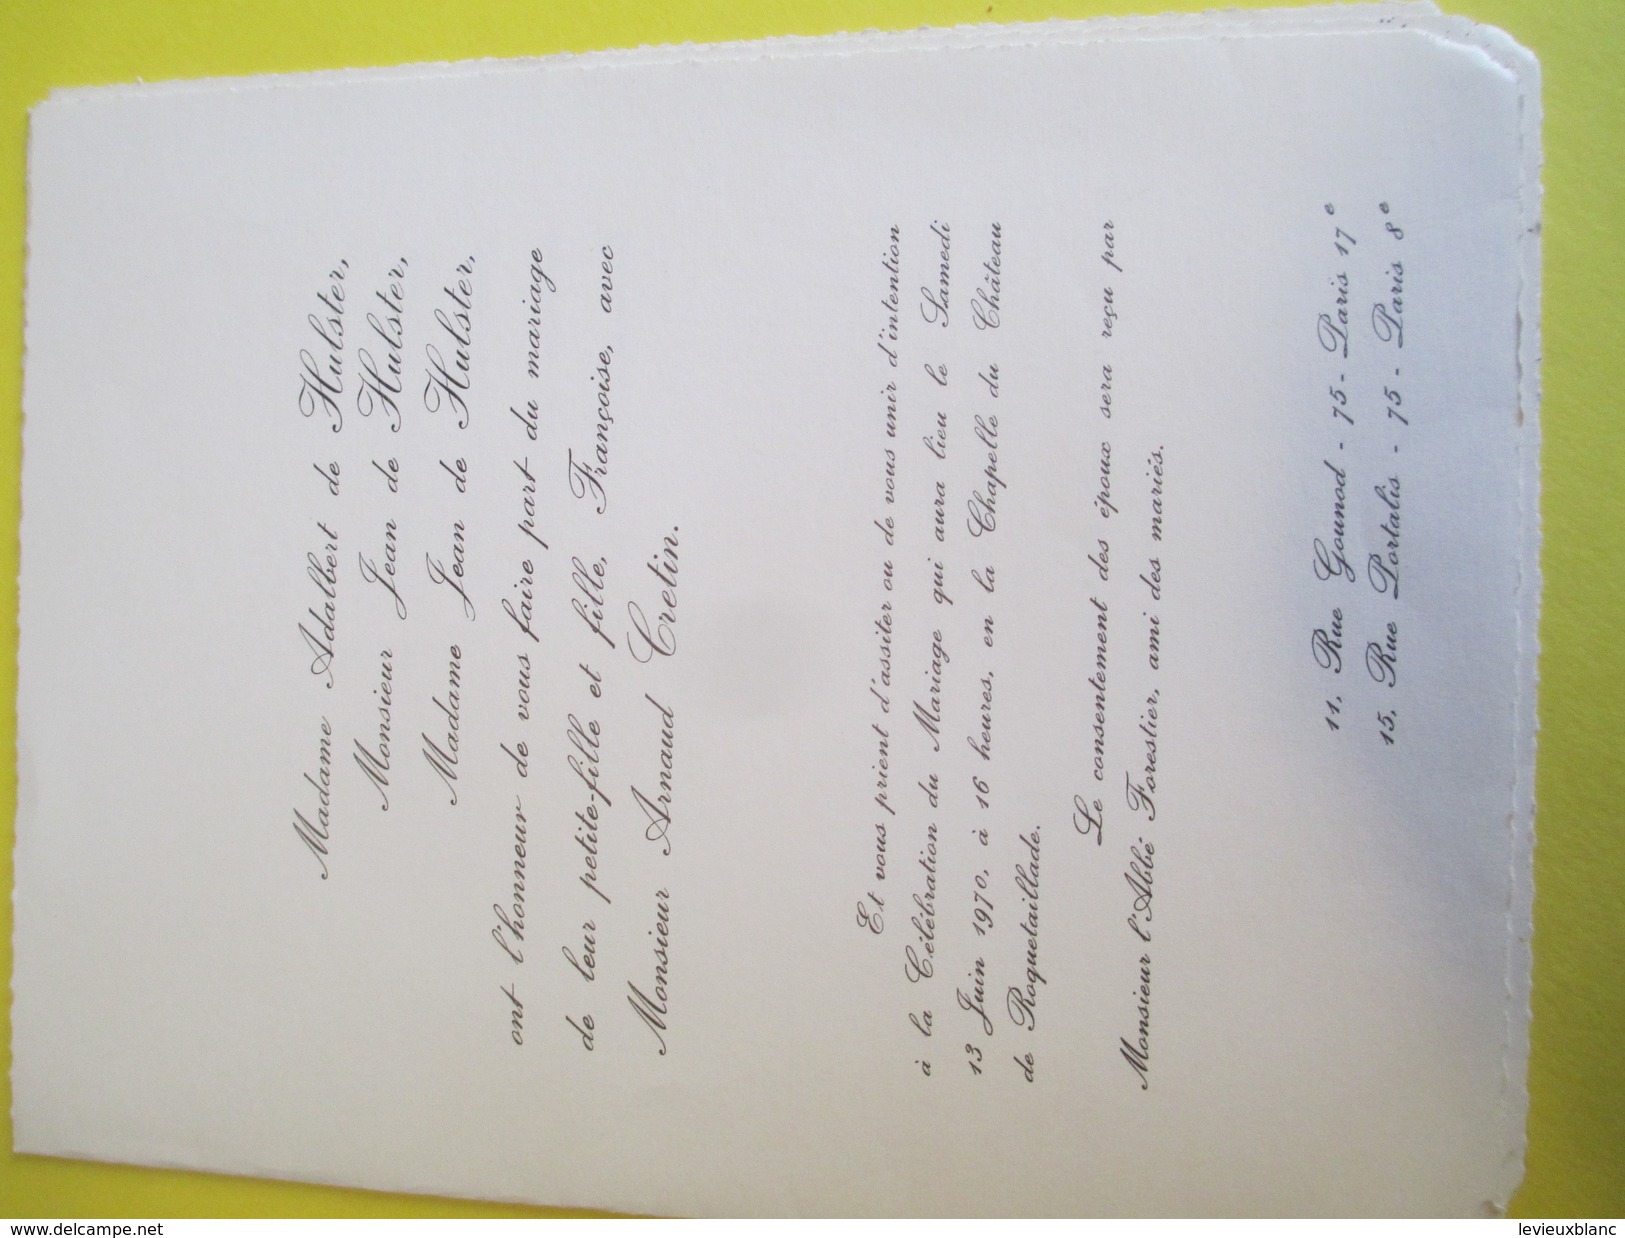 Madame Adalbert de Hulster,
Monsieur Jean de Hulster,
Madame Jean de Hulster,
ont l'honneur de vous faire part du mariage
de leur petite-fille et fille, Françoise, avec
Monsieur Arnaud Cretin.
Et vous prient d'assiter ou de vous unir d'intention
à la Célébration du Mariage qui aura lieu le Samedi
13 Juin 1970, à 16 heures, en la Chapelle du Château
de Roquetaillade.
Le consentement des époux sera reçu par
Monsieur l'Abbé Forestier, ami des mariés.
11, Rue Gounod - 75 - Paris 17e
15, Rue Portalis - 75 - Paris 8e
www.delcampe.net
levieuxblanc